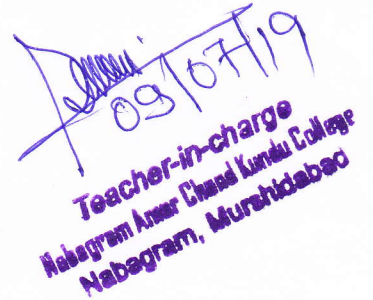 09/07/19
Teacher-in-charge
Nabagram Amar Chand Kundu College
Nabagram, Murshidabad